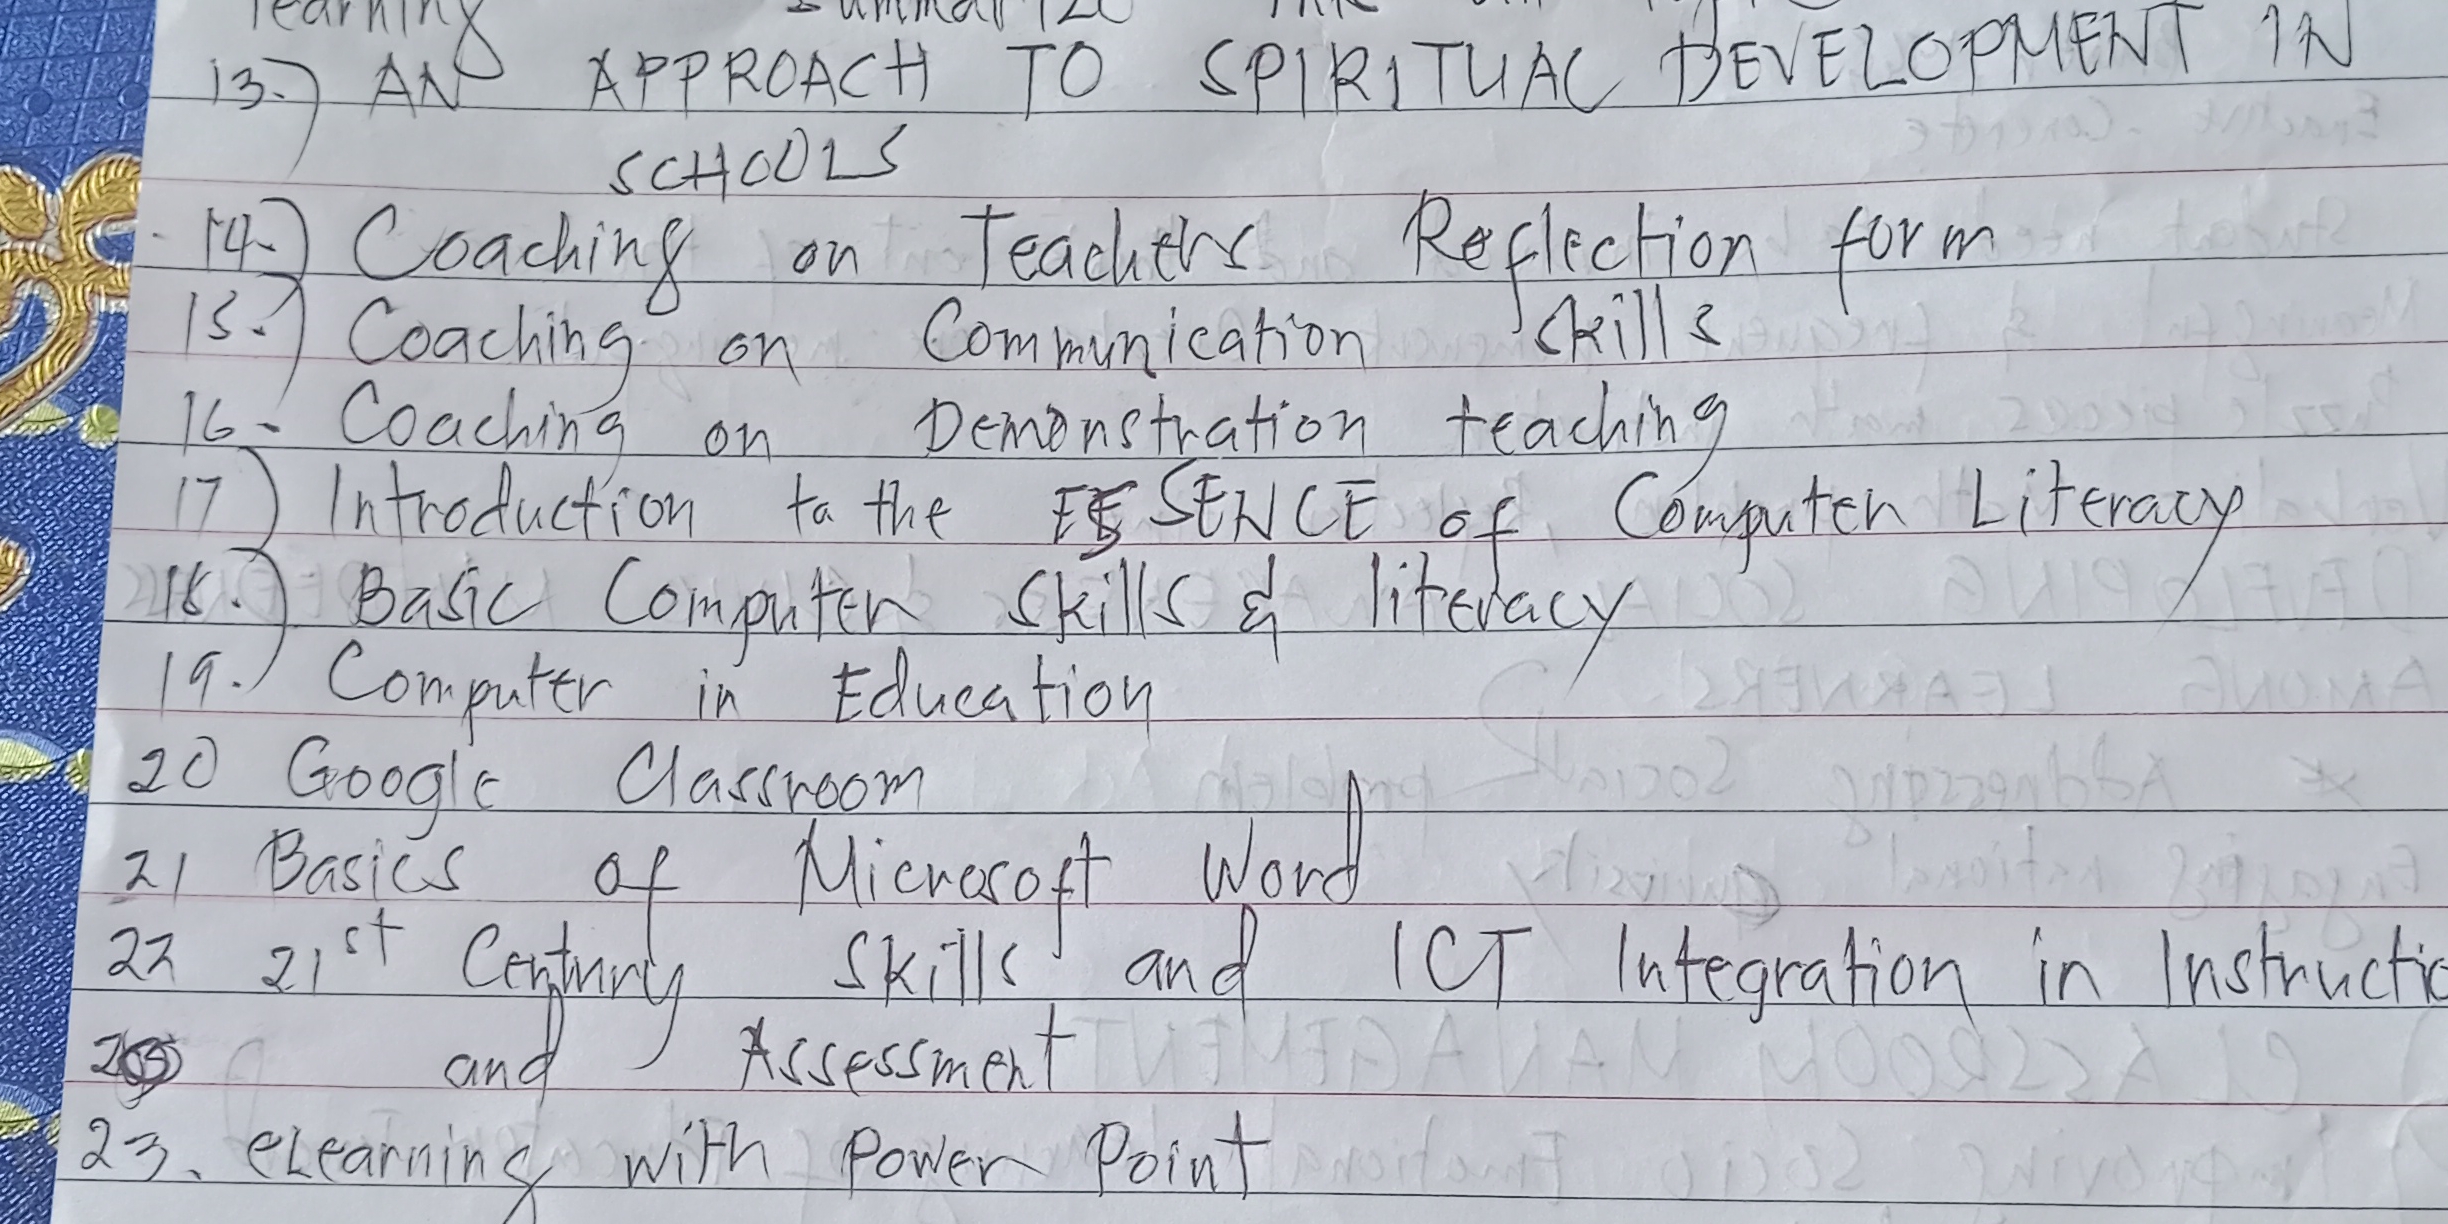 learning summarize
13.) AN APPROACH TO SPIRITUAL DEVELOPMENT IN
SCHOOLS
14.) Coaching on Teachers Reflection form
15.) Coaching on Communication Skills
16. Coaching on Demonstration teaching
17) Introduction to the ESSENCE of Computer Literacy
18.) Basic Computer Skills & literacy
19. Computer in Education
20 Google Classroom
21 Basics of Microsoft Word
22 21st Century Skills and ICT Integration in Instructio
and Assessment
23. eLearning with Power Point